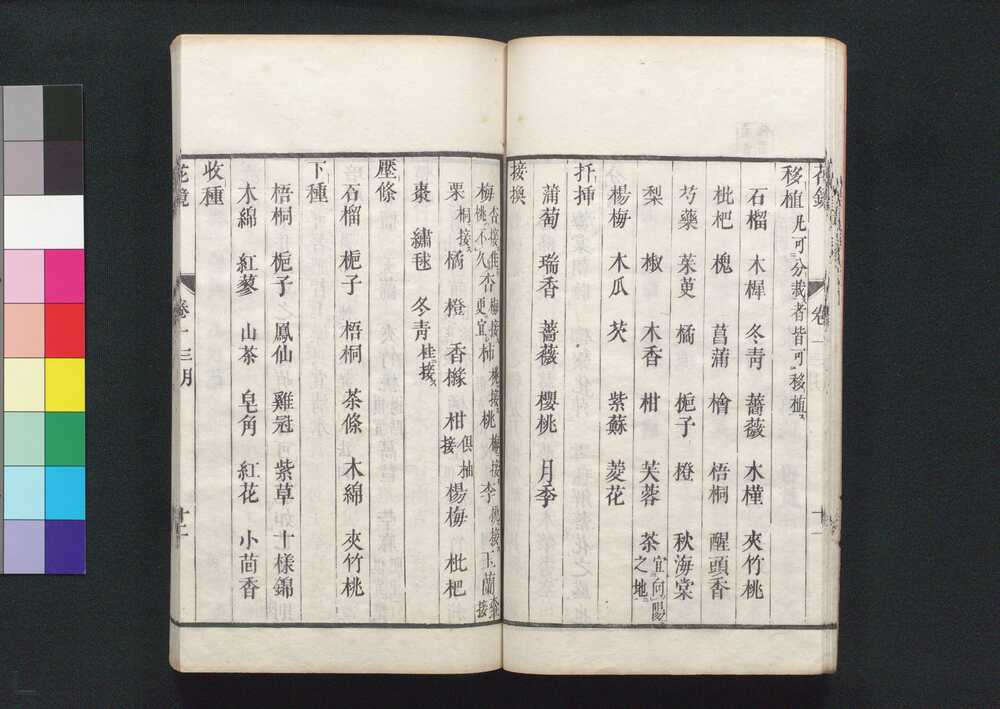 移植 凡可分栽者皆可移植
石榴 木樨 冬青 薔薇 水槿 夾竹桃
枇杷 槐 菖蒲 檜 梧桐 醒頭香
芍藥 茱萸 橘 梔子 橙 秋海棠
梨 椒 木香 柑 芙蓉 茶宜向陽之地
楊梅 木瓜 芡 紫蘇 菱花
扦挿
蒲萄 瑞香 薔薇 櫻桃 月季
接換
梅杏接佳桃不久 杏梅接更宜 柿桃接 桃梅接 李桃接 玉蘭
栗桐接 橘 橙 香櫞 柑俱抽接 楊梅 枇杷
棗 繡毬 冬青桂接
壓條
石榴 梔子 梧桐 茶條 木綿 夾竹桃
下種
梧桐 梔子 鳳仙 雞冠 紫草 十樣錦
木綿 紅蓼 山茶 皂角 紅花 小茴香
收種
花鏡 卷一 三月 十二